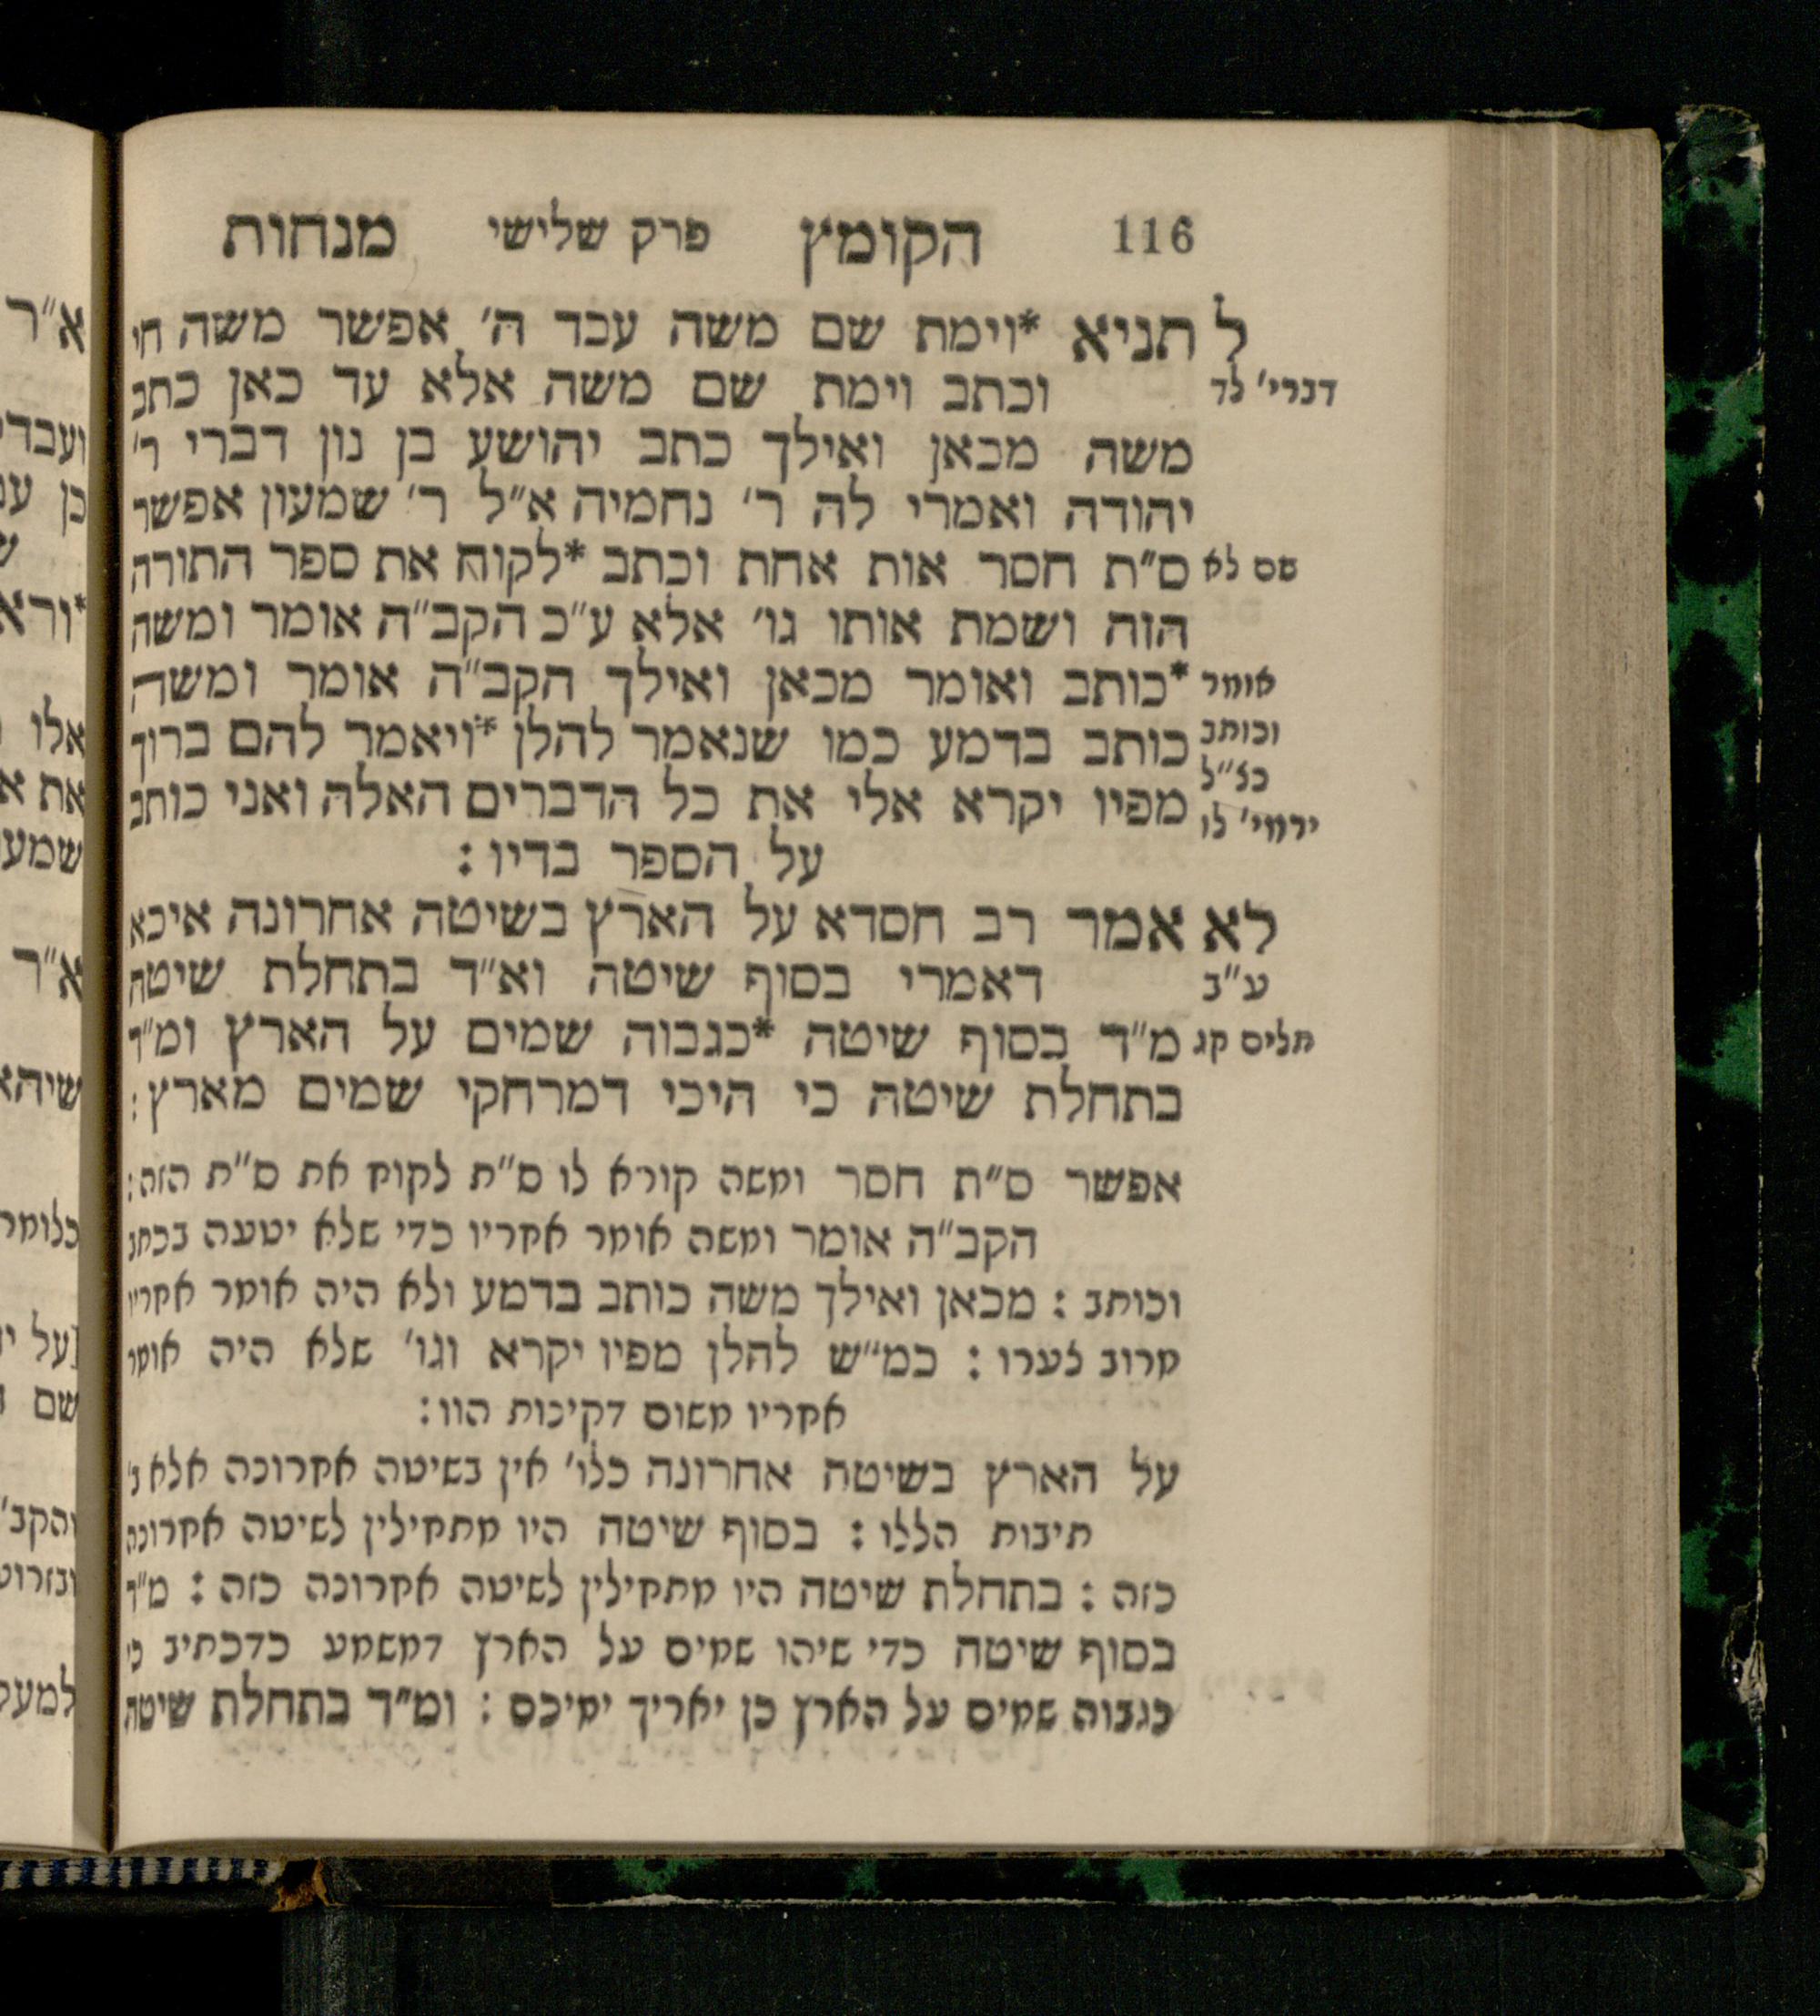 116 הקומץ פרק שלישי מנחות
ל תניא *וימת שם משה עבד ה' אפשר משה חי
דברי' לד וכתב וימת שם משה אלא עד כאן כתב
משה מכאן ואילך כתב יהושע בן נון דברי ר'
יהודה ואמרי לה ר' נחמיה א"ל ר' שמעון אפשר
שם לא ס"ת חסר אות אחת וכתב *לקוח את ספר התורה
הזה ושמת אותו גו' אלא ע"כ הקב"ה אומר ומשה
אומר *כותב ואומר מכאן ואילך הקב"ה אומר ומשה
וכותב כותב בדמע כמו שנאמר להלן *ויאמר להם ברוך
כצ"ל
ירמי' לו מפיו יקרא אלי את כל הדברים האלה ואני כותב
על הספר בדיו :
לא אמר רב חסדא על הארץ בשיטה אחרונה איכא
ע"ב דאמרי בסוף שיטה וא"ד בתחלת שיטה
תלים קג מ"ד בסוף שיטה *כגבוה שמים על הארץ ומ"ד
בתחלת שיטה כי היכי דמרחקי שמים מארץ :
אפשר ס"ת חסר ומשה קורא לו ס"ת לקוח את ס"ת הזה :
הקב"ה אומר ומשה אומר אחריו כדי שלא יטעה בכתב
וכותב : מכאן ואילך משה כותב בדמע ולא היה אומר אחריו
מרוב צערו : כמ"ש להלן מפיו יקרא וגו' שלא היה אומר
אחריו משום דקינות הוו :
על הארץ בשיטה אחרונה כלו' אין בשיטה אחרונה אלא ב'
תיבות הללו : בסוף שיטה היו מתחילין לשיטה אחרונה
כזה : בתחלת שיטה היו מתחילין לשיטה אחרונה כזה : מ"ד
בסוף שיטה כדי שיהו שמים על הארץ דמשמע כדכתיב כי
כגבוה שמים על הארץ כן יאריך ימיכם : ומ"ד בתחלת שיטה
א"ר
*ורא
אלו
את
א"ר
כלומר
שם